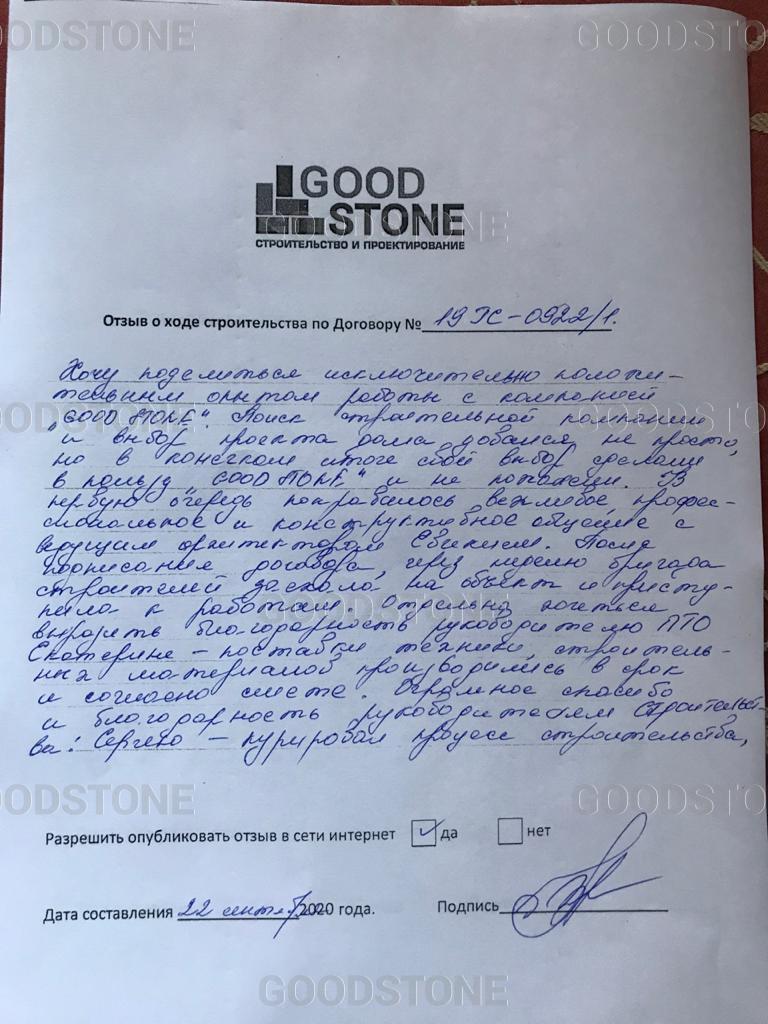 GOODSTONE
GOOD
STONE
СТРОИТЕЛЬСТВО И ПРОЕКТИРОВАНИЕ
Отзыв о ходе строительства по Договору № 19 ГС-0922/1.
Хочу поделиться исключительно положи-
тельным опытом работы с компанией
„GOOD STONE“. Поиск строительной компании
и выбор проекта дома дбался не просто,
но в конечном итоге свой выбор сделали
в пользу „GOOD STONE“ и не пожалели. В
первую очередь понравилось вежливое, профес-
сиональное и конструктивное общение с
ведущим архитектором Евгением. После
подписания договора, через неделю бригада
строителей заехала на объект и присту-
пила к работам. Отдельно хочется
выразить благодарность руководителю ПТО
Екатерине - поставки техники, строитель-
ных материалов производились в срок
и согласно смете. Огромное спасибо
и благодарность руководителям строительст-
ва: Сергею - курировал процесс строительства,
Разрешить опубликовать отзыв в сети интернет да нет
Дата составления 22 сентяб. 2020 года. Подпись
GOODSTONE